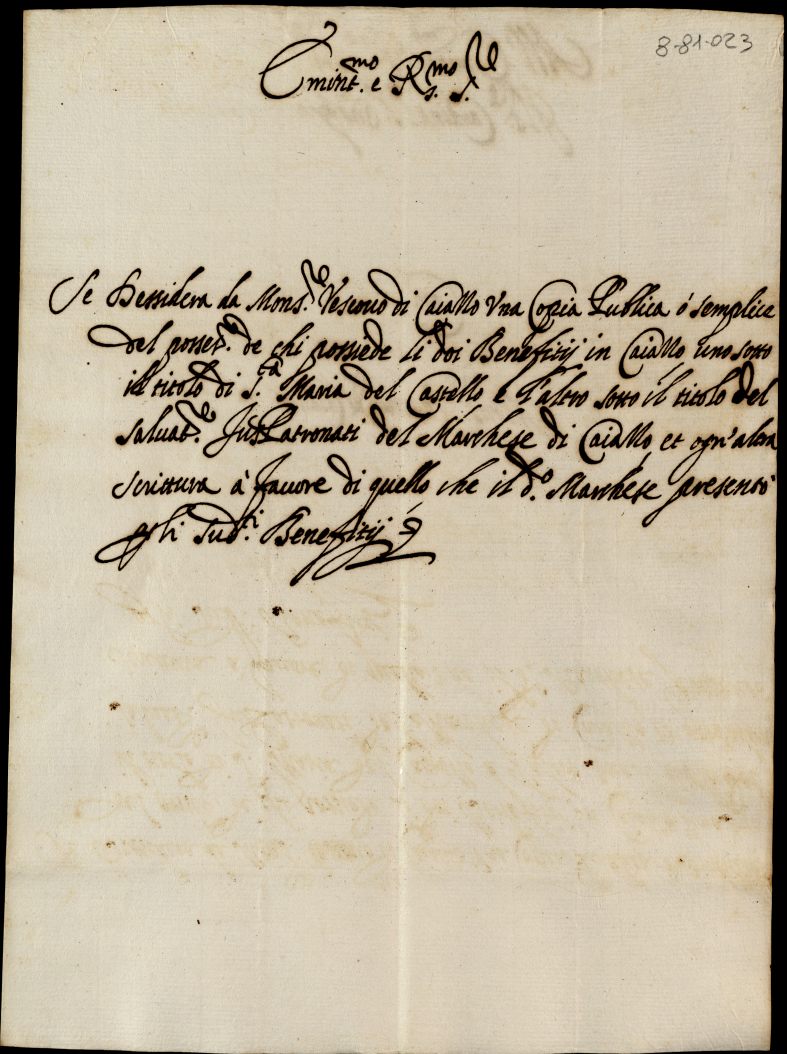 8-81-023
Emin.mo e R.mo S.re
Se Dessidera da Mons.re Vescouo di Caiazzo Vna Copia Publica ó semplice
del posses.o de chi possiede li doi Benefitij in Caiazzo uno sotto
il titolo di S.ta Maria del Castello e l'altro sotto il titolo del
saluat.re JusPatronati del Marchese di Caiazzo et ogn'altra
scrittura à fauore di quello che il d.o Marchese presentò
agli Sud.ti Benefitij